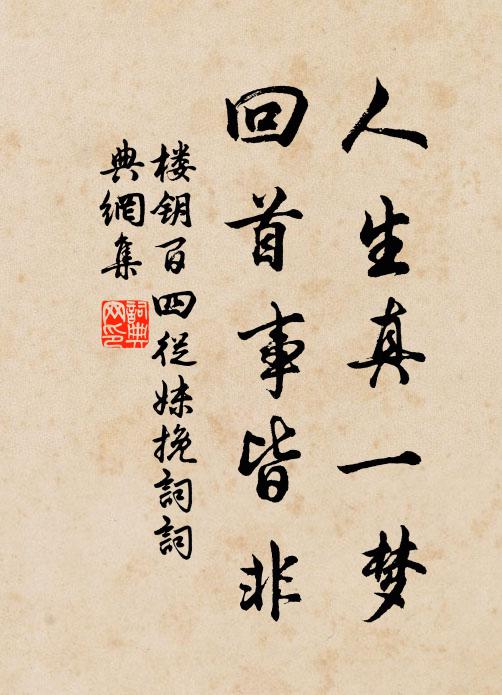 人生真一梦
回首事皆非
楼钥百四从妹挽詞詞
典網集
詞典
网印